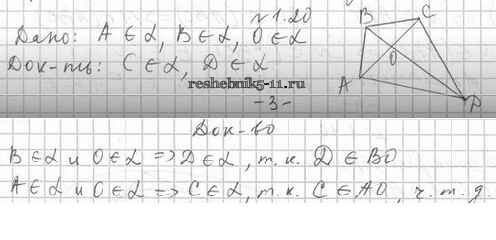 №1.20
Дано: A ∈ α, B ∈ α, O ∈ α
Док-ть: C ∈ α, D ∈ α
reshebnik5-11.ru
-3-
B
C
O
A
D
Док-во
B ∈ α и O ∈ α => D ∈ α, т.к. D ∈ BO
A ∈ α и O ∈ α => C ∈ α, т.к. C ∈ AO, ч.т.д.